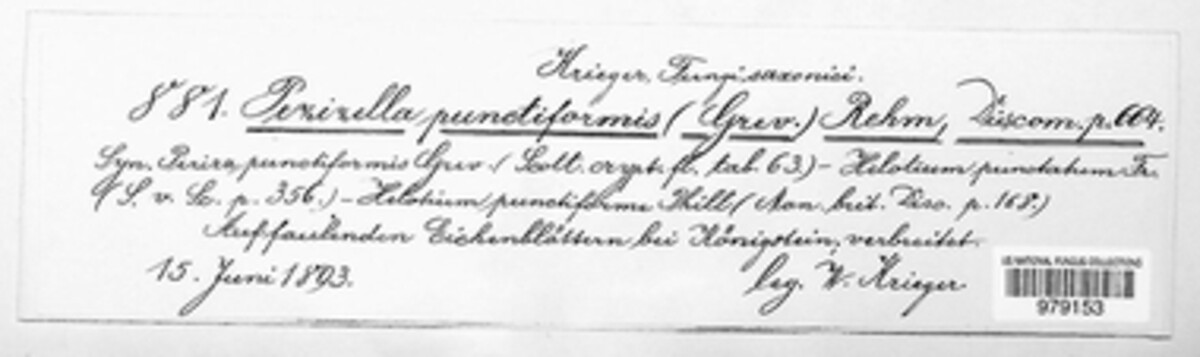 Krieger, Fungi saxonici.
881. Pezizella punctiformis (Grev.) Rehm, Discom. p. 664.
Syn. Peziza punctiformis Grev. (Scott. crypt. fl. tab. 63.) – Helotium punctatum Fr.
(S. v. Sc. p. 356.) – Helotium punctiforme Phill. (Man. brit. Disc. p. 168.)
Auf faulenden Eichenblättern bei Königstein, verbreitet.
15. Juni 1893.
leg. W. Krieger
US NATIONAL FUNGUS COLLECTIONS
979153